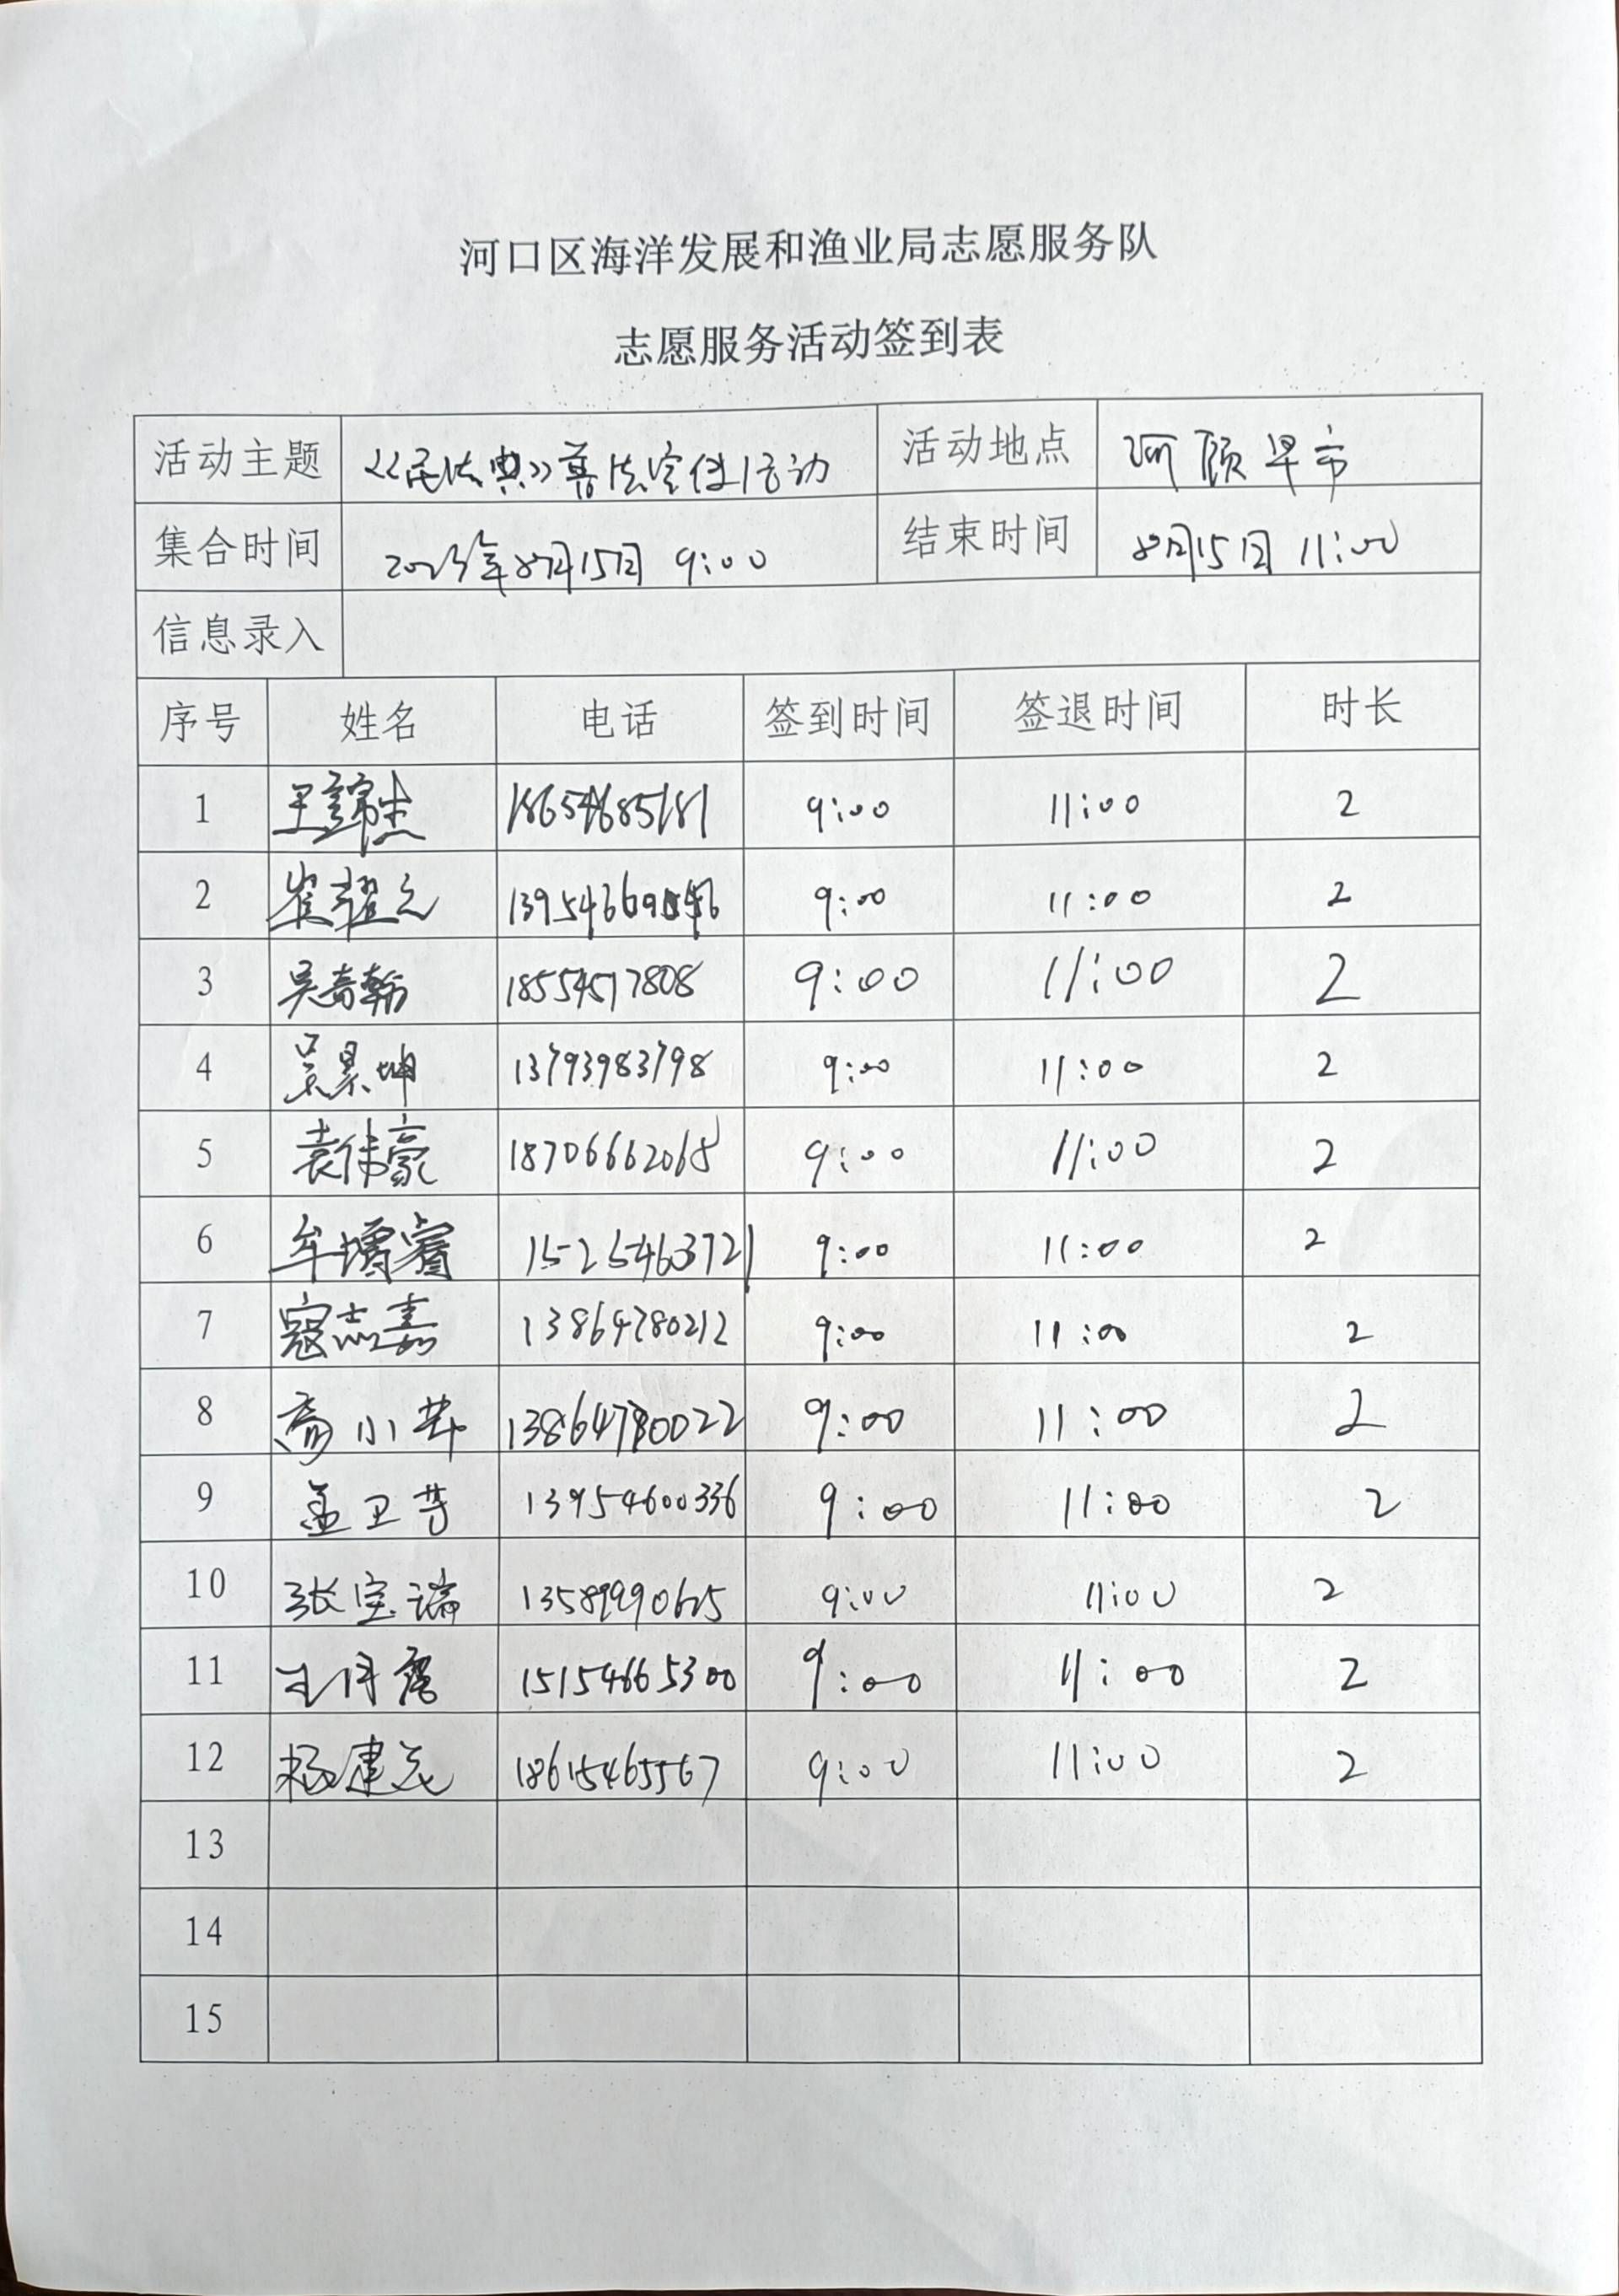 河口区海洋发展和渔业局志愿服务队
志愿服务活动签到表
活动主题 《民法典》普法宣传活动 活动地点 河颐早市
集合时间 8月15日 9:00 结束时间 8月15日 11:00
信息录入
序号 姓名 电话 签到时间 签退时间 时长
1 18654685181 9:00 11:00 2
2 崔耀元 9:00 11:00 2
3 吴奇翰 18554517808 9:00 11:00 2
4 吴景坤 13793983798 9:00 11:00 2
5 袁伟豪 18706662068 9:00 11:00 2
6 1525463721 9:00 11:00 2
7 寇志嘉 13864780212 9:00 11:00 2
8 13864780022 9:00 11:00 2
9 孟卫芳 13954600336 9:00 11:00 2
10 张宝瑞 13589990625 9:00 11:00 2
11 15154665300 9:00 11:00 2
12 杨建茂 18615465567 9:00 11:00 2
13
14
15